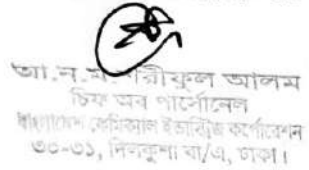 আ.ন.ম. শরীফুল আলম
চিফ অব পার্সোনেল
বাংলাদেশ কেমিক্যাল ইন্ডাস্ট্রিজ কর্পোরেশন
৩০-৩১, দিলকুশা বা/এ, ঢাকা।